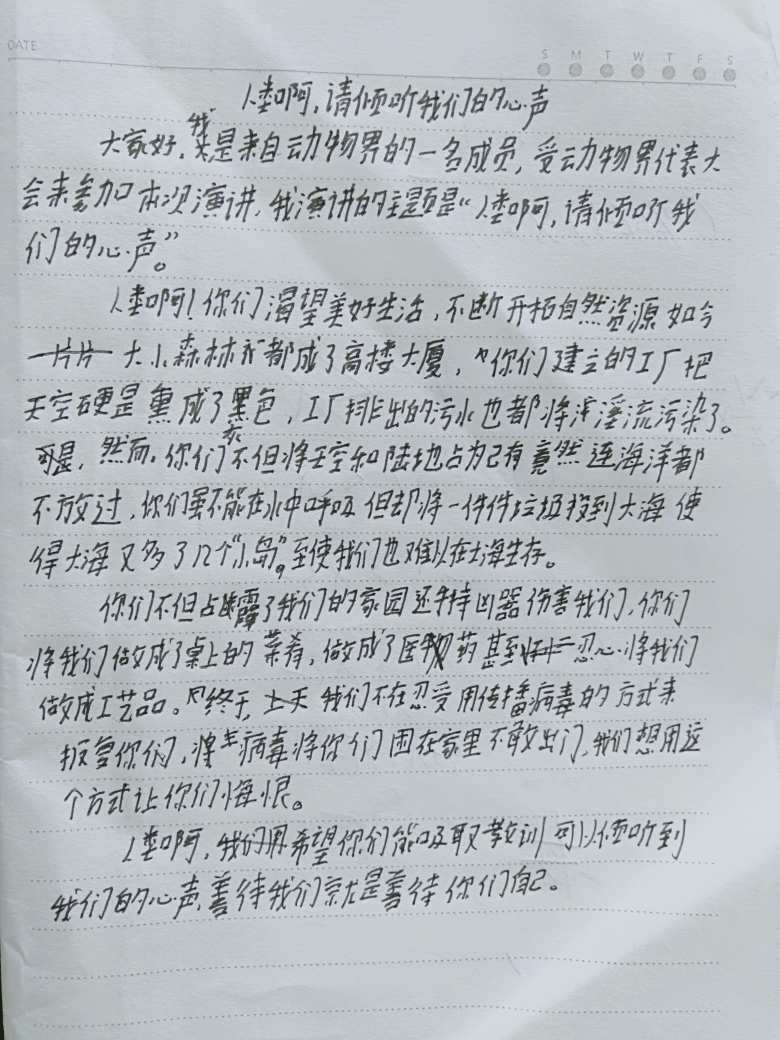 DATE
S M T W T F S
人类啊,请倾听我们的心声
大家好,我是来自动物界的一名成员,受动物界代表大
会来参加本次演讲,我演讲的主题是“人类啊,请倾听我
们的心声”。
人类啊!你们渴望美好生活,不断开拓自然资源如今
大小森林都成了高楼大厦,你们建立的工厂把
天空硬是熏成了黑色,工厂排出的污水也都将河流污染了。
然而,你们不但将天空和陆地占为己有竟然连海洋都
不放过,你们虽不能在水中呼吸但却将一件件垃圾投到大海使
得大海又多了几个“小岛”。至使我们也难以在大海生存。
你们不但占霸了我们的家园还持凶器伤害我们,你们
将我们做成了桌上的菜肴,做成了医药甚至忍心将我们
做成工艺品。终于,我们不在忍受用传播病毒的方式来
报复你们,将病毒将你们困在家里不敢出门,我们想用这
个方式让你们悔恨。
人类啊,我们希望你们能吸取教训可以倾听到
我们的心声,善待我们就是善待你们自己。